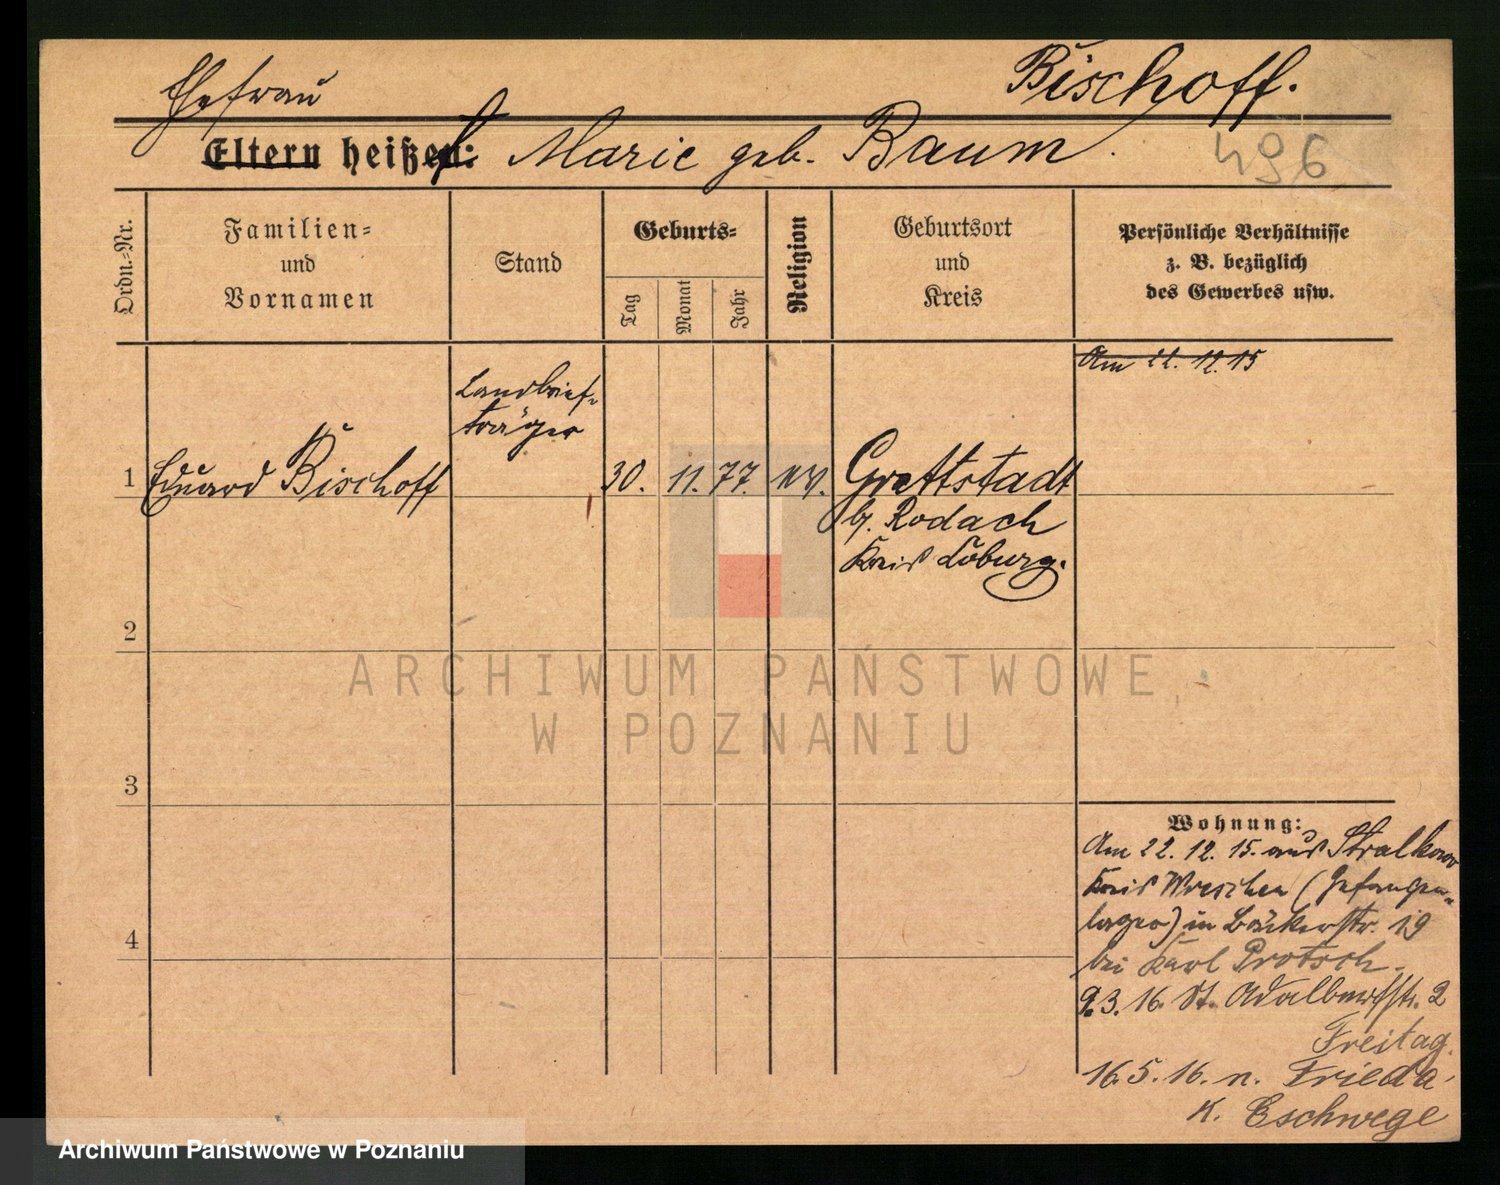 Ehefrau
Bischoff.
Eltern heißen: Marie geb. Baum.
496
Ordn.-Nr.
Familien-
und
Vornamen
Stand
Geburts-
Tag
Monat
Jahr
Religion
Geburtsort
und
Kreis
Persönliche Verhältnisse
z. B. bezüglich
des Gewerbes usw.
Am 22. 12. 15
Landbrief-
träger
1 Eduard Bischoff 30. 11. 77. ev. Grattstadt
b. Rodach
Kreis Coburg.
2
3
4
Wohnung:
Am 22. 12. 15. aus Stralkowo
Kreis Wreschen (Gefangen-
lager) in Bäckerstr. 19
bei Karl Protsch.
9.3.16. St. Adalbertstr. 2
Freitag.
16.5.16. n. Frieda
K. Eschwege
ARCHIWUM PAŃSTWOWE
W POZNANIU
Archiwum Państwowe w Poznaniu